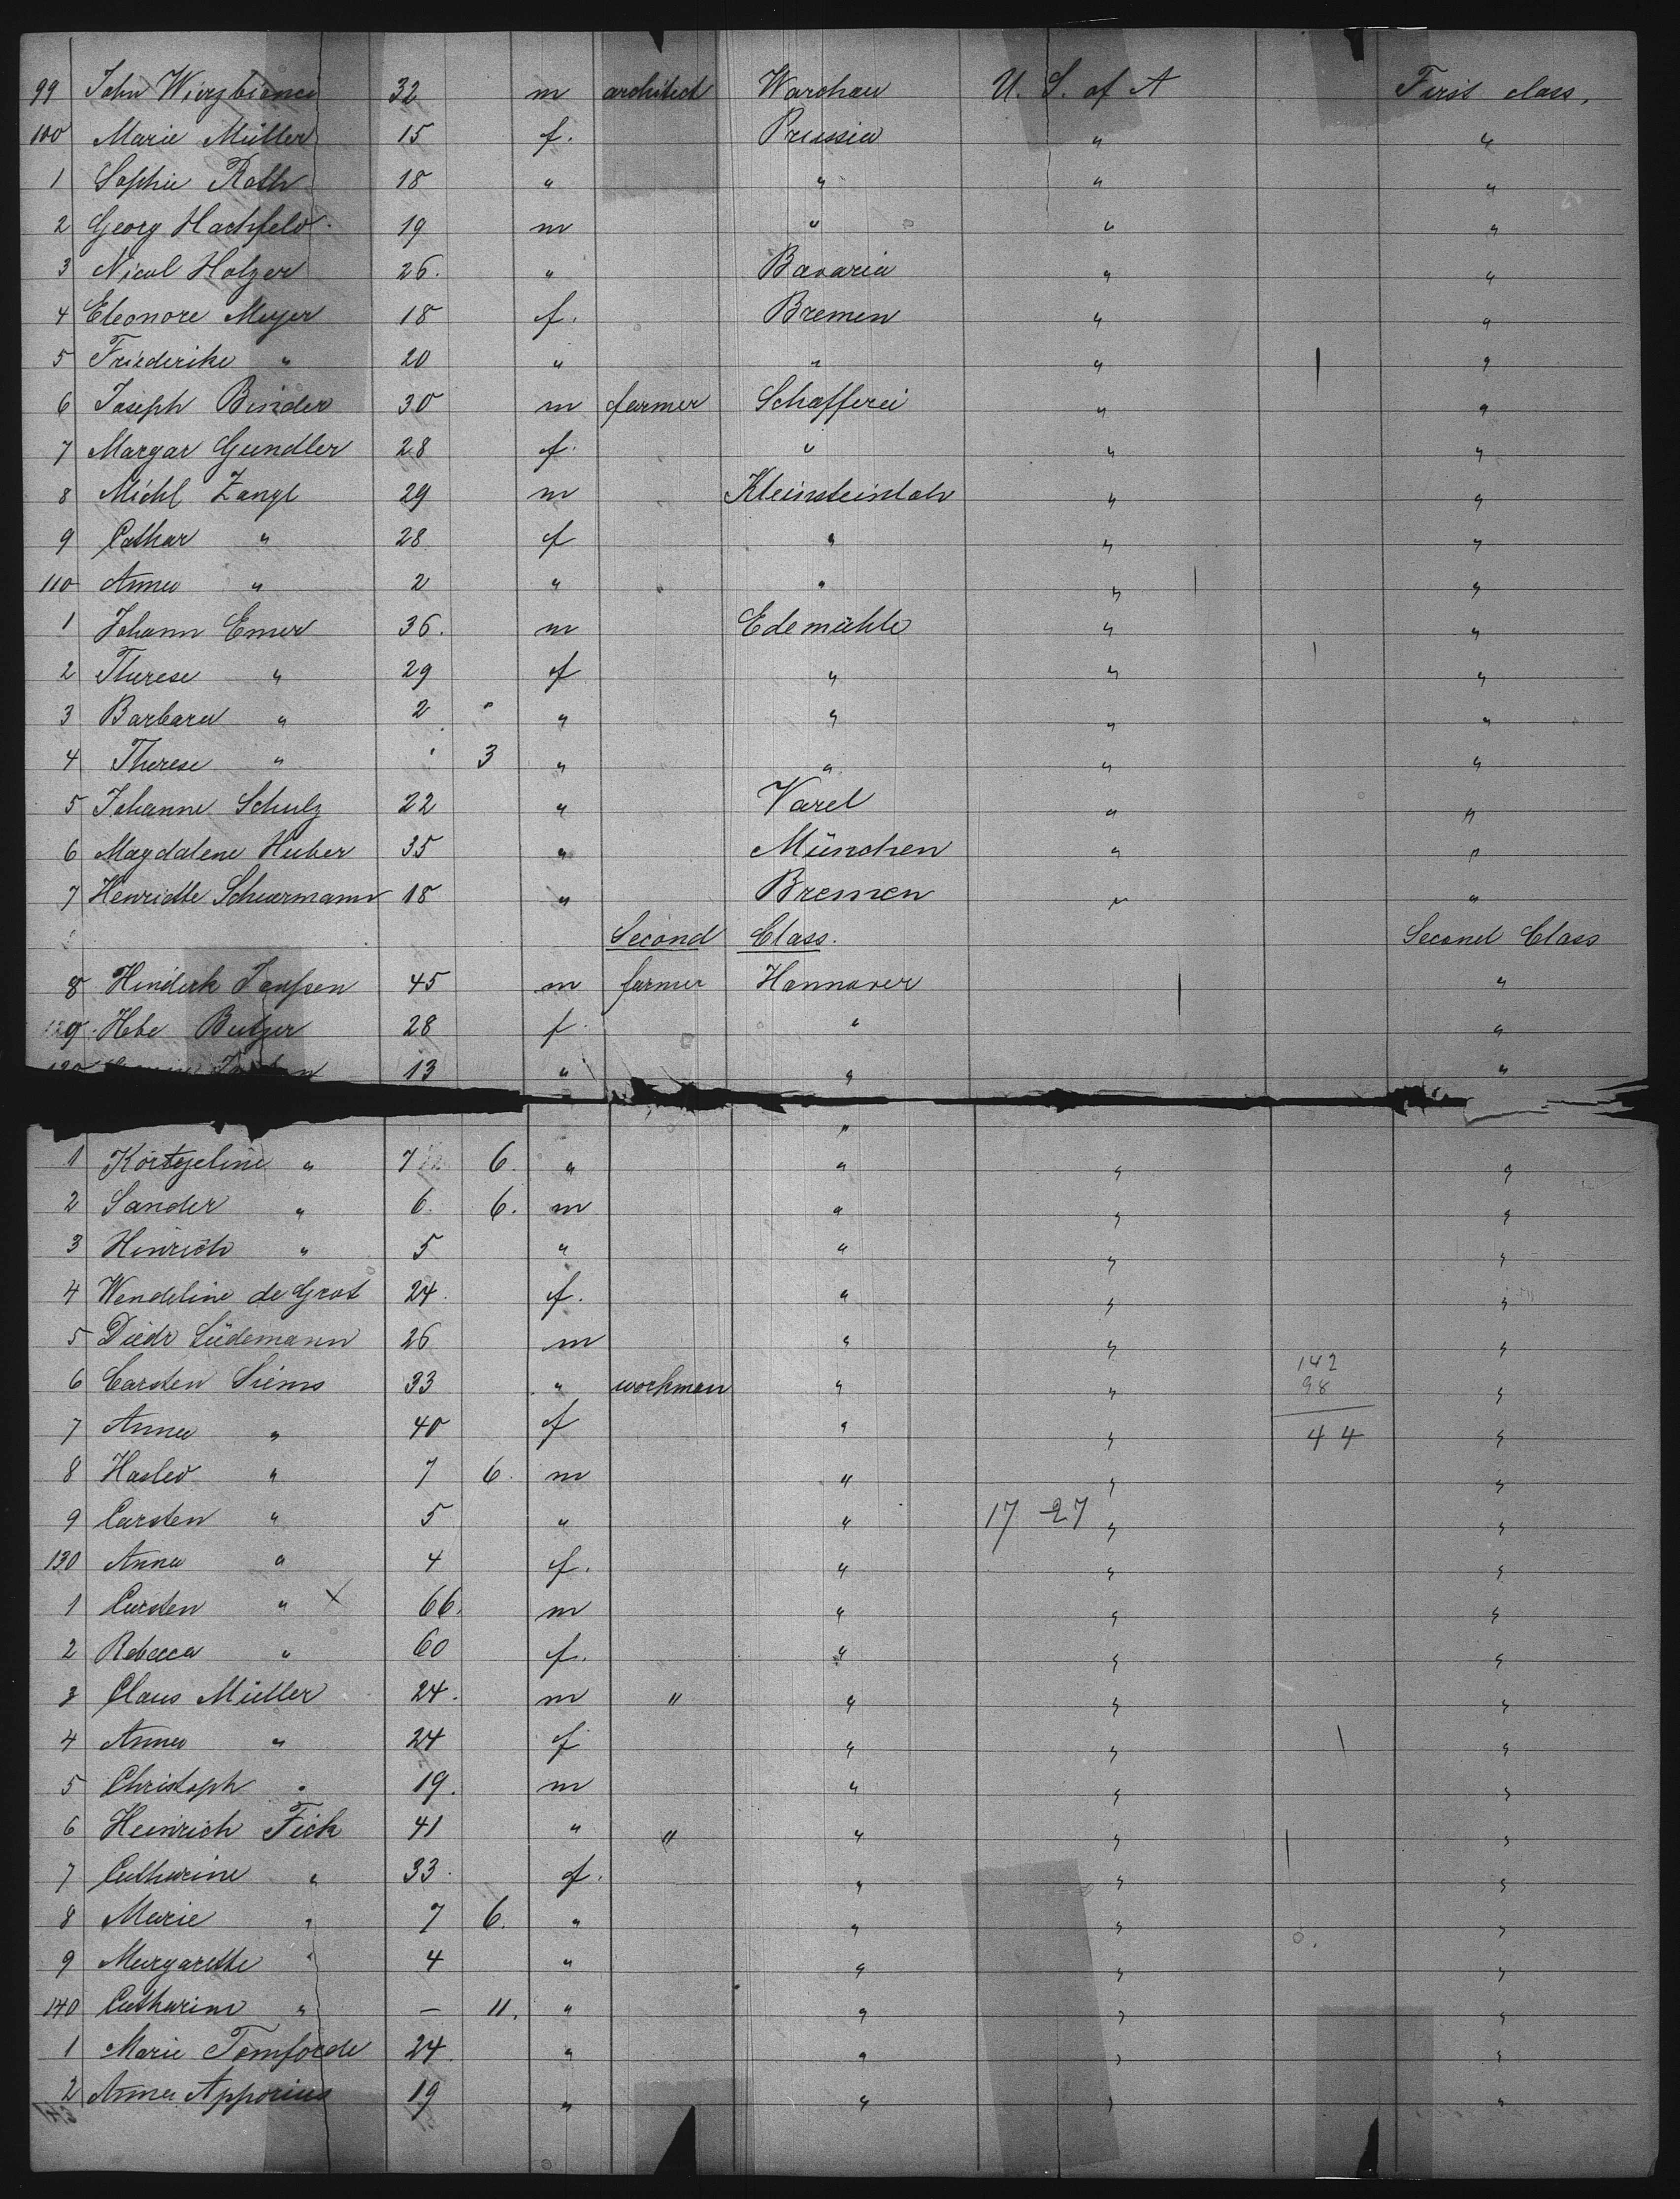 99 John Wierzbianca 32 m architect Warchau U. S. of A First class.
100 Marie Müller 15 f. Prussia " "
1 Sophie Roth 18 " " " "
2 Georg Hachfeld 19 m " " "
3 Nicol Holzer 26. " Bavaria " "
4 Eleonore Meyer 18 f. Bremen " "
5 Friederike " 20 " " " "
6 Joseph Binder 30 m farmer Schafferei " "
7 Margar Gundler 28 f. " " "
8 Michl Zangl 29 m Kleinsteinloh " "
9 Cathar " 28 f " " "
110 Anna " 2 " " " "
1 Johann Emer 36. m Edemühle " "
2 Therese " 29 f " " "
3 Barbara " 2 " " " "
4 Therese " 3 " " " "
5 Johanne Schulz 22 " Varel " "
6 Magdalene Huber 35 " München " "
7 Henriette Scheermann 18 " Bremen " "
Second Class. Second Class
8 Hinderk Janssen 45 m farmer Hannover "
9 Hebe 28 f. " "
120 13 " " "
"
1 Kortjeline " 7 6. " " " "
2 Sander " 6. 6. m " " "
3 Hinrich " 5 " " " "
4 Wendeline de Grot 24. f. " " "
5 Diedr Lüdemann 26 m " " "
142
6 Carsten Siems 33 " workman " " 98 "
7 Anna " 40 f " " 44 "
8 Hasled " 7 6. m " " "
9 Carsten " 5 " " 17 27 " "
130 Anna " 4 f. " " "
1 Carsten " X 66. m " " "
2 Rebecca " 60 f. " " "
3 Claus Müller 24. m " " " "
4 Anna " 24 f " " "
5 Christoph " 19. m " " "
6 Heinrich Fick 41 " " " " "
7 Catharine " 33. f. " " "
8 Marie " 7 6. " " " "
9 Margarethe " 4 " " " "
140 Catharine " — 11. " " " "
1 Marie Tomforde 24 " " " "
2 Anna Apporius 19 " " " "